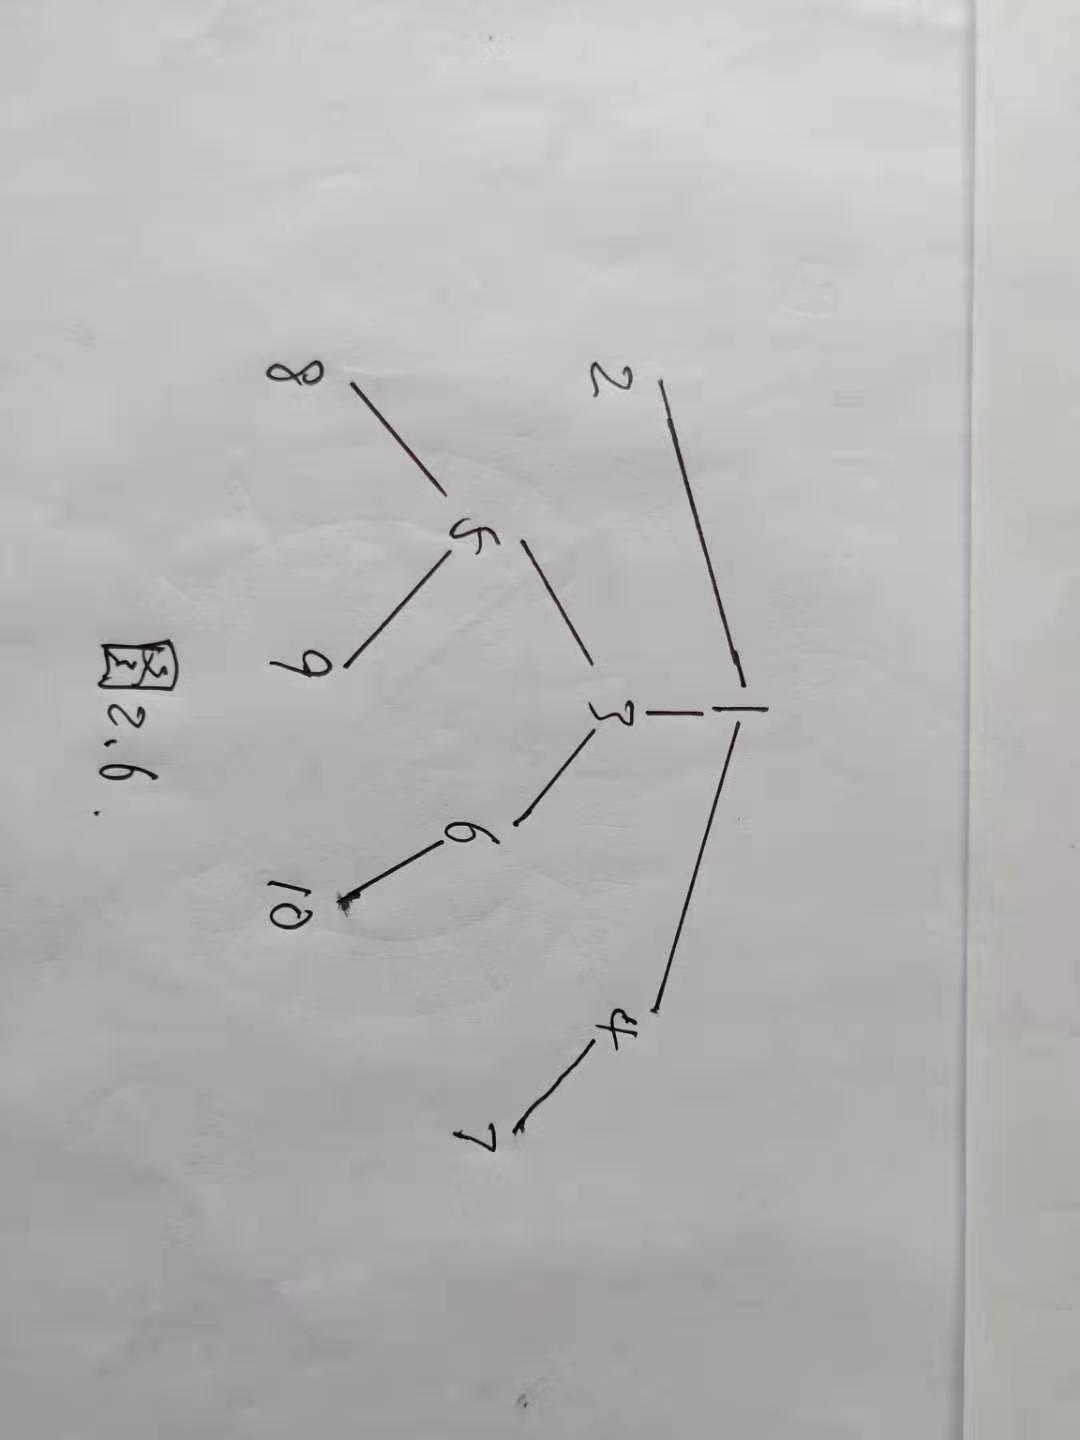 1
2 3 4
5 6 7
8 9 10
图2.6.